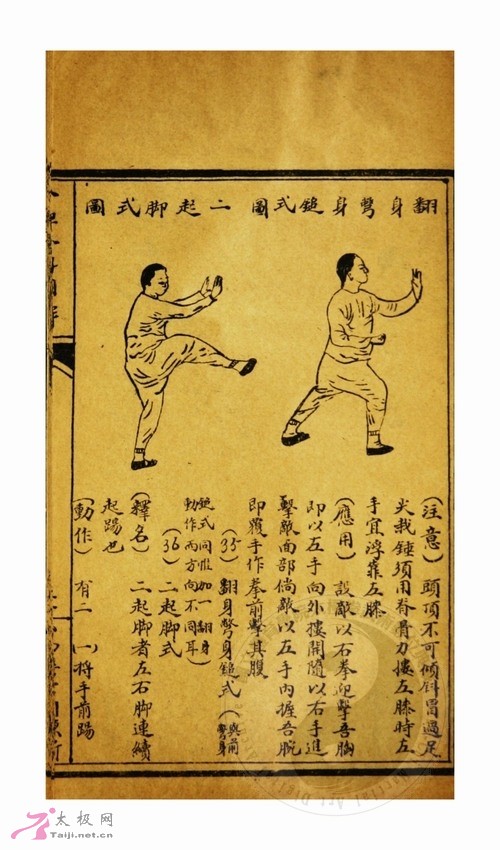 翻身彆身鎚式圖 二起脚式圖
(注意) 頭頂不可傾斜冒過足
尖栽錘須用脊骨力摟左膝時左
手宜浮靠左膝
(應用) 設敵以右拳迎擊吾胸
即以左手向外摟開隨以右手進
擊敵面部倘敵以左手內握吾腕
即覆手作拳前擊其腹
(35) 翻身彆身鎚式 (與前彆身
鎚式同惟加一翻身
動作而方向不同耳)
(36) 二起脚式
(釋名) 二起脚者左右脚連續
起踢也
(動作) 有二 一)將手前踢
太极网
Taiji.net.cn